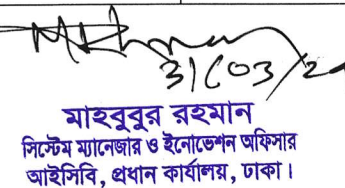 31/03/2
মাহবুবুর রহমান
সিস্টেম ম্যানেজার ও ইনোভেশন অফিসার
আইসিবি, প্রধান কার্যালয়, ঢাকা।